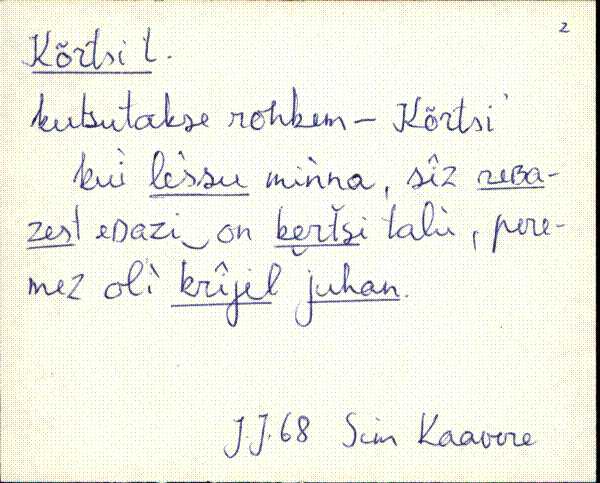 2
Kõrtsi t.
kutsutakse rohkem – Kõrtsi'
kuì lè̀ssu mìǹna, sîz reBa-
zest eDazi on kɐrtši talù, pere-
mez olì krîjel juhan.
J.J.68 Siim Kaavere